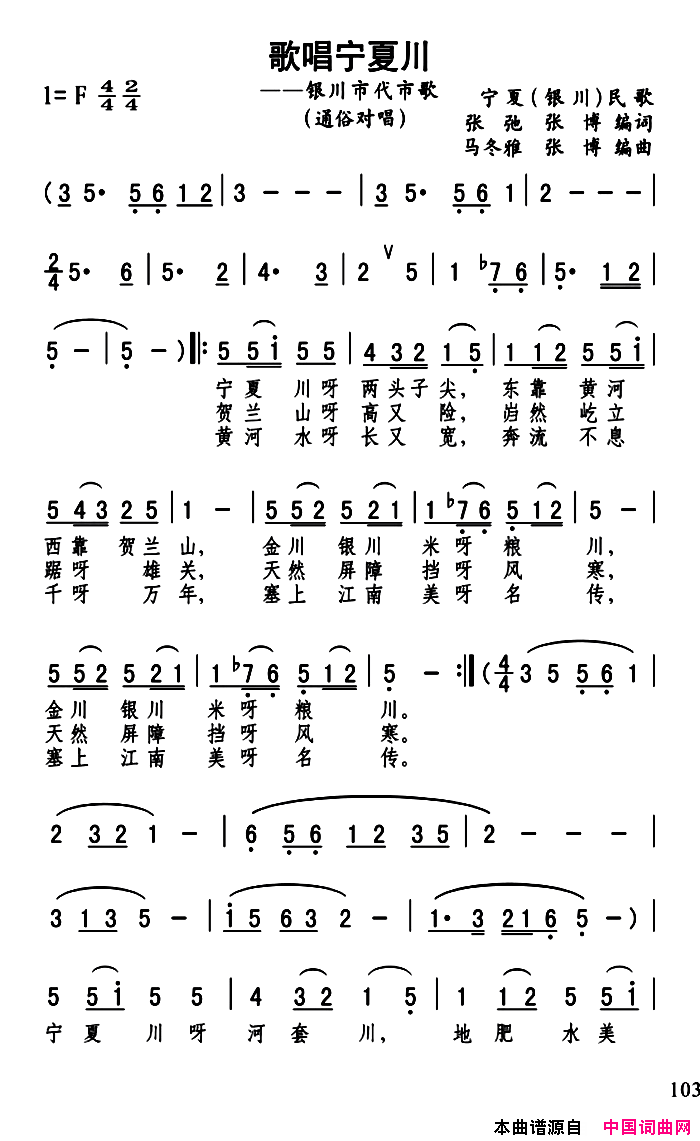 歌唱宁夏川
——银川市代市歌
(通俗对唱)
1= F 4/4 2/4
宁夏(银川)民歌
张弛 张博编词
马冬雅 张博编曲
(3 5· 5 6 1 2 | 3 − − − | 3 5· 5 6 1 | 2 − − −
2/4 5· 6 | 5· 2 | 4· 3 | 2 ∨ 5 | 1 ♭7 6 | 5· 1 2
5 − | 5 − ) ‖: 5 5 i 5 5 | 4 3 2 1 5 | 1 1 2 5 5 i
宁夏 川呀 两头子尖, 东靠 黄河
贺兰 山呀 高又 险, 岿然 屹立
黄河 水呀 长又 宽, 奔流 不息
5 4 3 2 5 | 1 − | 5 5 2 5 2 1 | 1 ♭7 6 5 1 2 | 5 −
西靠 贺兰山, 金川 银川 米呀粮 川,
踞呀 雄关, 天然 屏障 挡呀风 寒,
千呀 万年, 塞上 江南 美呀名 传,
5 5 2 5 2 1 | 1 ♭7 6 5 1 2 | 5 − :‖ (4/4 3 5 5 6 1
金川 银川 米呀粮 川。
天然 屏障 挡呀风 寒。
塞上 江南 美呀名 传。
2 3 2 1 − | 6 5 6 1 2 3 5 | 2 − − −
3 1 3 5 − | i 5 6 3 2 − | 1· 3 2 1 6 5 − )
5 5 i 5 5 | 4 3 2 1 5 | 1 1 2 5 5 i
宁夏 川呀 河套 川, 地肥 水美
103
本曲谱源自 中国词曲网